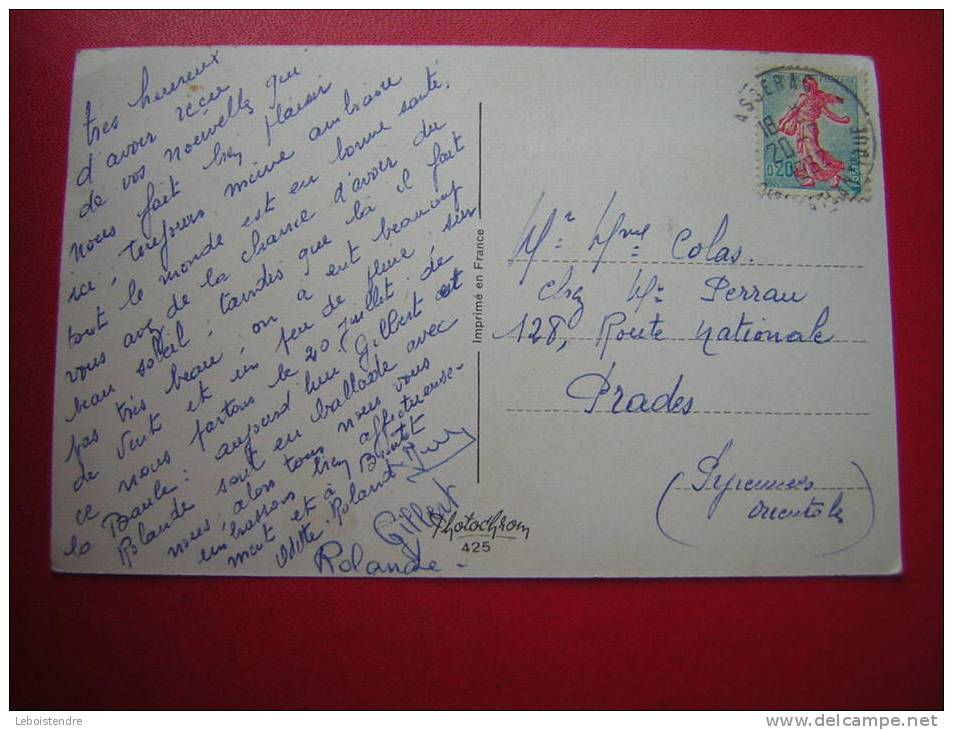 très heureux
d'avoir reçu
de vos nouvelles qui
nous fait bien plaisir
ici, toujours même ambiance
tout le monde est en bonne santé.
vous avez de la chance d'avoir du
beau soleil, tandis que là il fait
pas très beau, on a eut beaucoup
de vent et un peu de pluie, sur
ce nous partons le 20 Juillet, de
la Baule: aujourd'hui Gilbert et
Rolande sont en ballade avec
nous, alors tous nous vous
embrassons bien affectueuse-
ment et à Bientôt
Odette. Roland
Gilbert
Rolande -
Imprimé en France
Photochrom
425
ASSERAC
18
20
0,20
Mr Mme Colas.
chez Mr Perrau
128, Route Nationale
Prades
(Pyrennées
orientales)
Leboistendre
www.delcampe.net